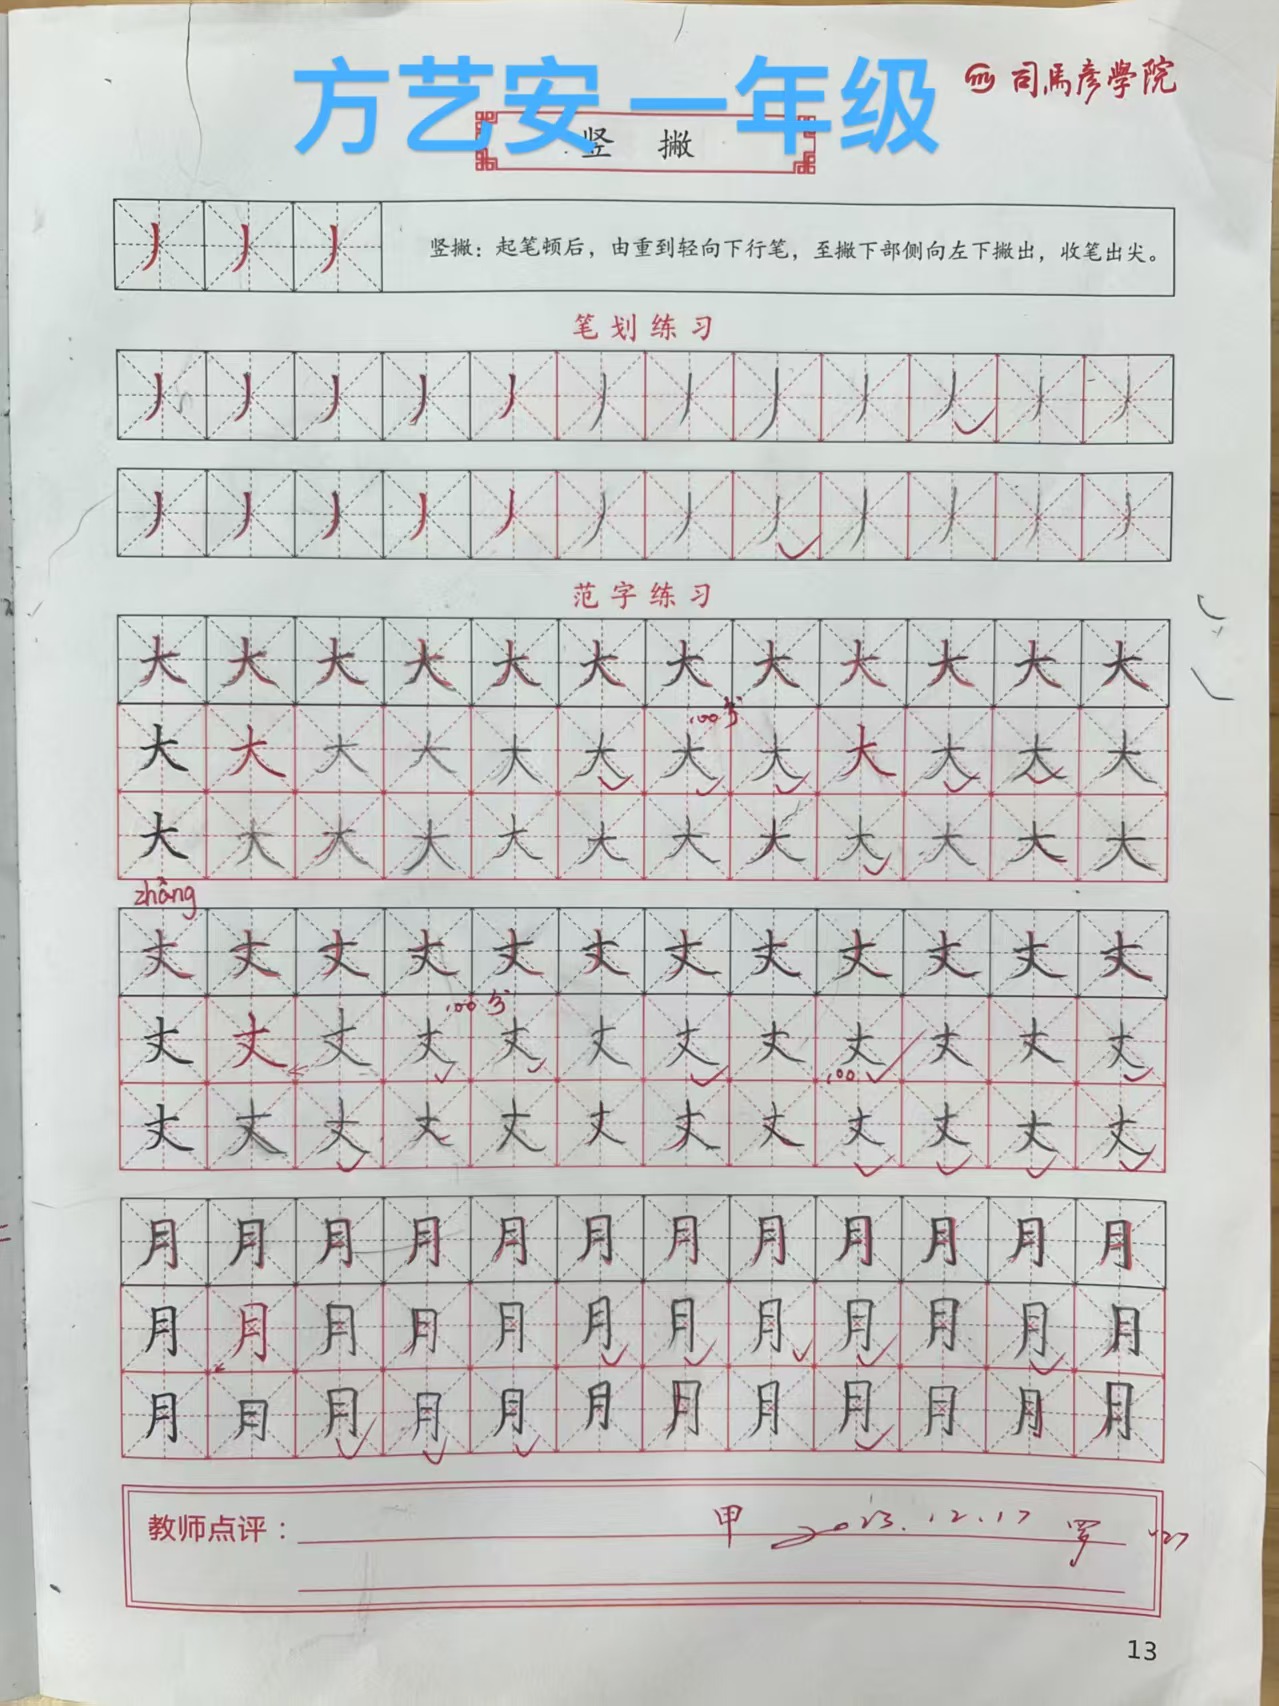 方艺安 一年级
司馬彦学院
竖 撇
丿 丿 丿
竖撇：起笔顿后，由重到轻向下行笔，至撇下部侧向左下撇出，收笔出尖。
笔划练习
丿 丿 丿 丿 丿 丿 丿 丿 丿 丿 丿 丿
丿 丿 丿 丿 丿 丿 丿 丿 丿 丿 丿 丿
范字练习
大 大 大 大 大 大 大 大 大 大 大 大
100分
大 大 大 大 大 大 大 大 大 大 大 大
大 大 大 大 大 大 大 大 大 大 大 大
zhàng
丈 丈 丈 丈 丈 丈 丈 丈 丈 丈 丈 丈
100分
丈 丈 丈 丈 丈 丈 丈 丈 丈 丈 丈 丈
100
丈 丈 丈 丈 丈 丈 丈 丈 丈 丈 丈 丈
月 月 月 月 月 月 月 月 月 月 月 月
月 月 月 月 月 月 月 月 月 月 月 月
月 月 月 月 月 月 月 月 月 月 月 月
教师点评： 甲 2023.12.17 罗
13